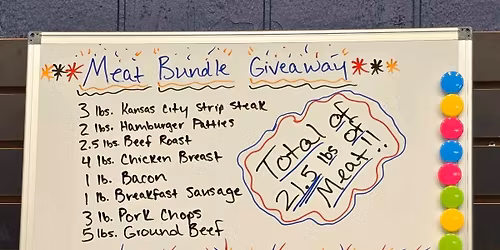 Meat Bundle Giveaway
3 lbs. Kansas City Strip Steak
2 lbs. Hamburger Patties
2.5 lbs. Beef Roast
4 lbs. Chicken Breast
1 lb. Bacon
1 lb. Breakfast Sausage
3 lb. Pork Chops
5 lbs. Ground Beef
Total of
21.5 lbs of
Meat!!